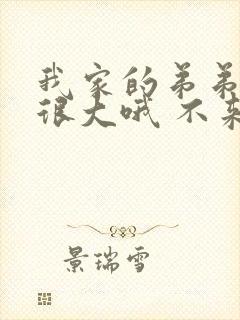 我家的弟弟
很大哦 不来
景瑞雪